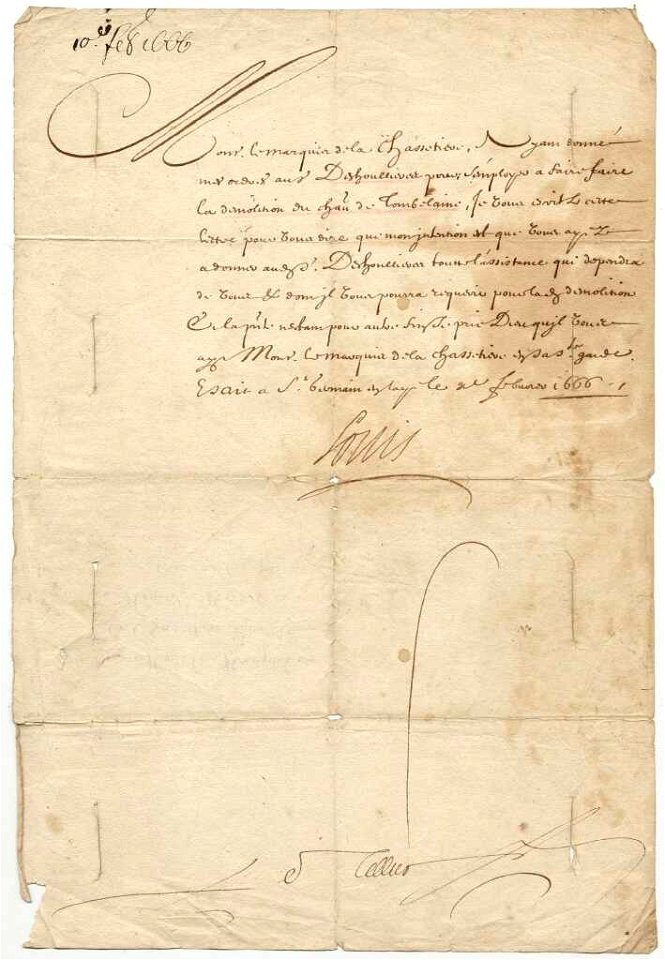 10e feb 1666
Monsr. le marquis de la Chassetiere, Ayant donné
mes ordres au Sr Deshoullieres pour s'employer a faire faire
la demolition du chau de Tombelaine, Je vous écrit cette
lettre pour vous dire que mon intention est que vous ayez
a donner aud Sr. Deshoullieres toute l'assistance qui dependra
de vous & dont jl vous pourra requerir pour lad demolition
Et la pnte n'estant pour autre fin Je prie Dieu qu'jl vous
ayt Monsr. le marquis de la chassetiere en sa ste garde.
Escrit a St. Germain en laye le Xe febvrier 1666
Louis
Le Tellier